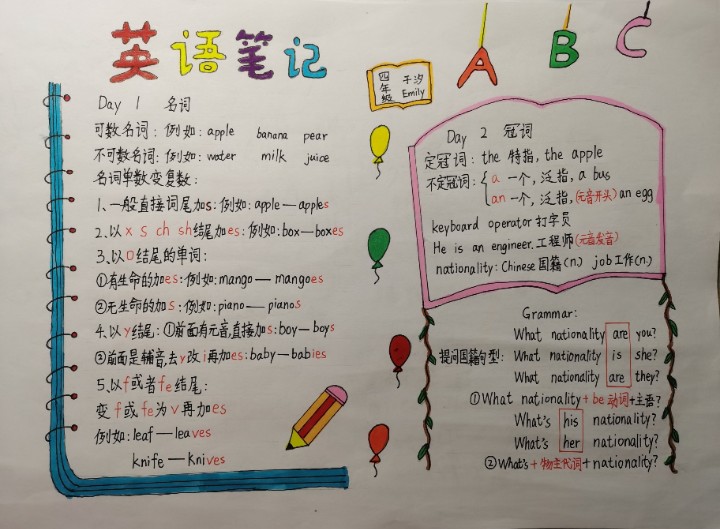 英语笔记
A B C
四年级 于汐 Emily
Day 1 名词
可数名词: 例如: apple banana pear
不可数名词: 例如: water milk juice
名词单数变复数:
1、一般直接词尾加s: 例如: apple—apples
2、以x s ch sh结尾加es: 例如: box—boxes
3、以O结尾的单词:
①有生命的加es: 例如: mango—mangoes
②无生命的加s: 例如: piano—pianos
4、以y结尾: ①前面有元音,直接加s: boy—boys
②前面是辅音,去y改i再加es: baby—babies
5、以f或者fe结尾:
变f或fe为v再加es
例如: leaf—leaves
knife—knives
Day 2 冠词
定冠词: the 特指, the apple
不定冠词: { a 一个, 泛指, a bus
an 一个, 泛指, (元音开头) an egg
keyboard operator 打字员
He is an engineer. 工程师 (元音发音)
nationality: Chinese 国籍(n.) job 工作(n.)
Grammar:
What nationality are you?
提问国籍句型: What nationality is she?
What nationality are they?
①What nationality + be 动词 + 主语?
What's his nationality?
What's her nationality?
②What's + 物主代词 + nationality?